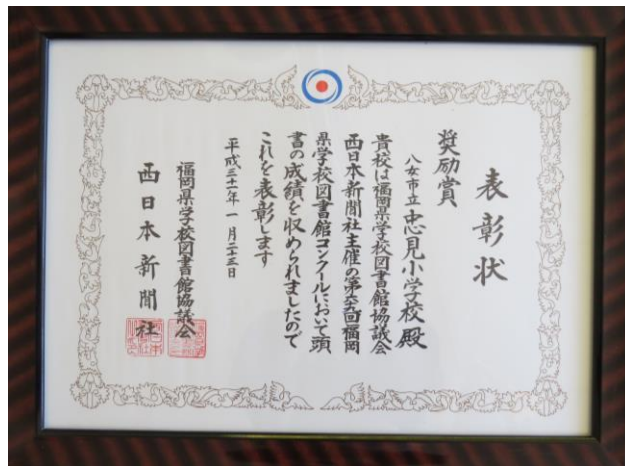 表彰状
奨励賞
八女市立忠見小学校殿
貴校は福岡県学校図書館協議会
西日本新聞社主催の第 回福岡
県学校図書館コンクールにおいて頭
書の成績を収められましたので
これを表彰します
平成三十一年一月二十三日
福岡県学校図書館協議会
西日本新聞社